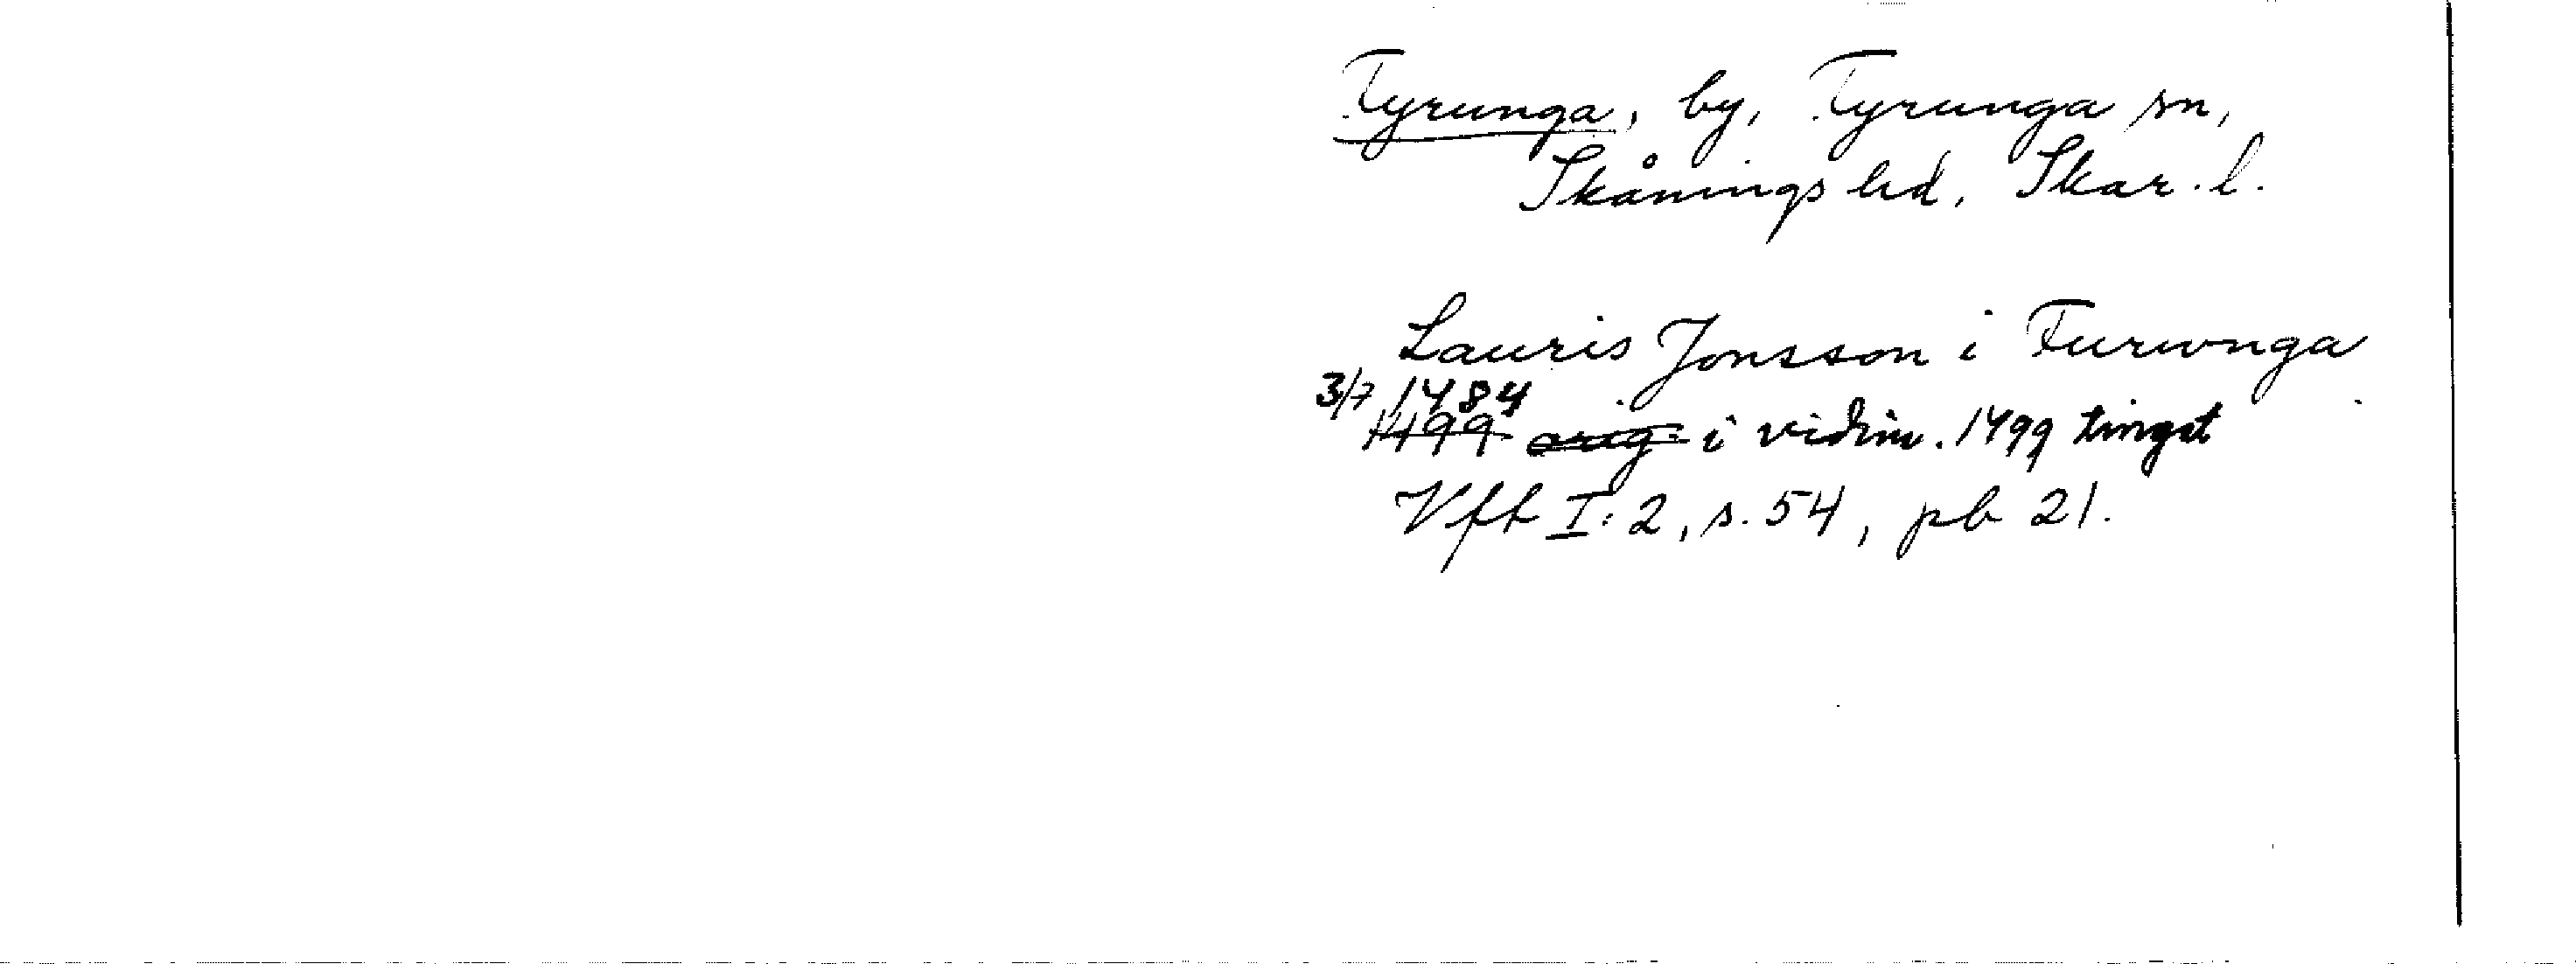 Tyrunga, by, Tyrunga sn,
Skånings hd, Skar. l.
Lauris Jonsson i Turwnga
3/7 1484
1499 orig. i vidim. 1499 tingst
Vff I:2, s. 54, pb 21.